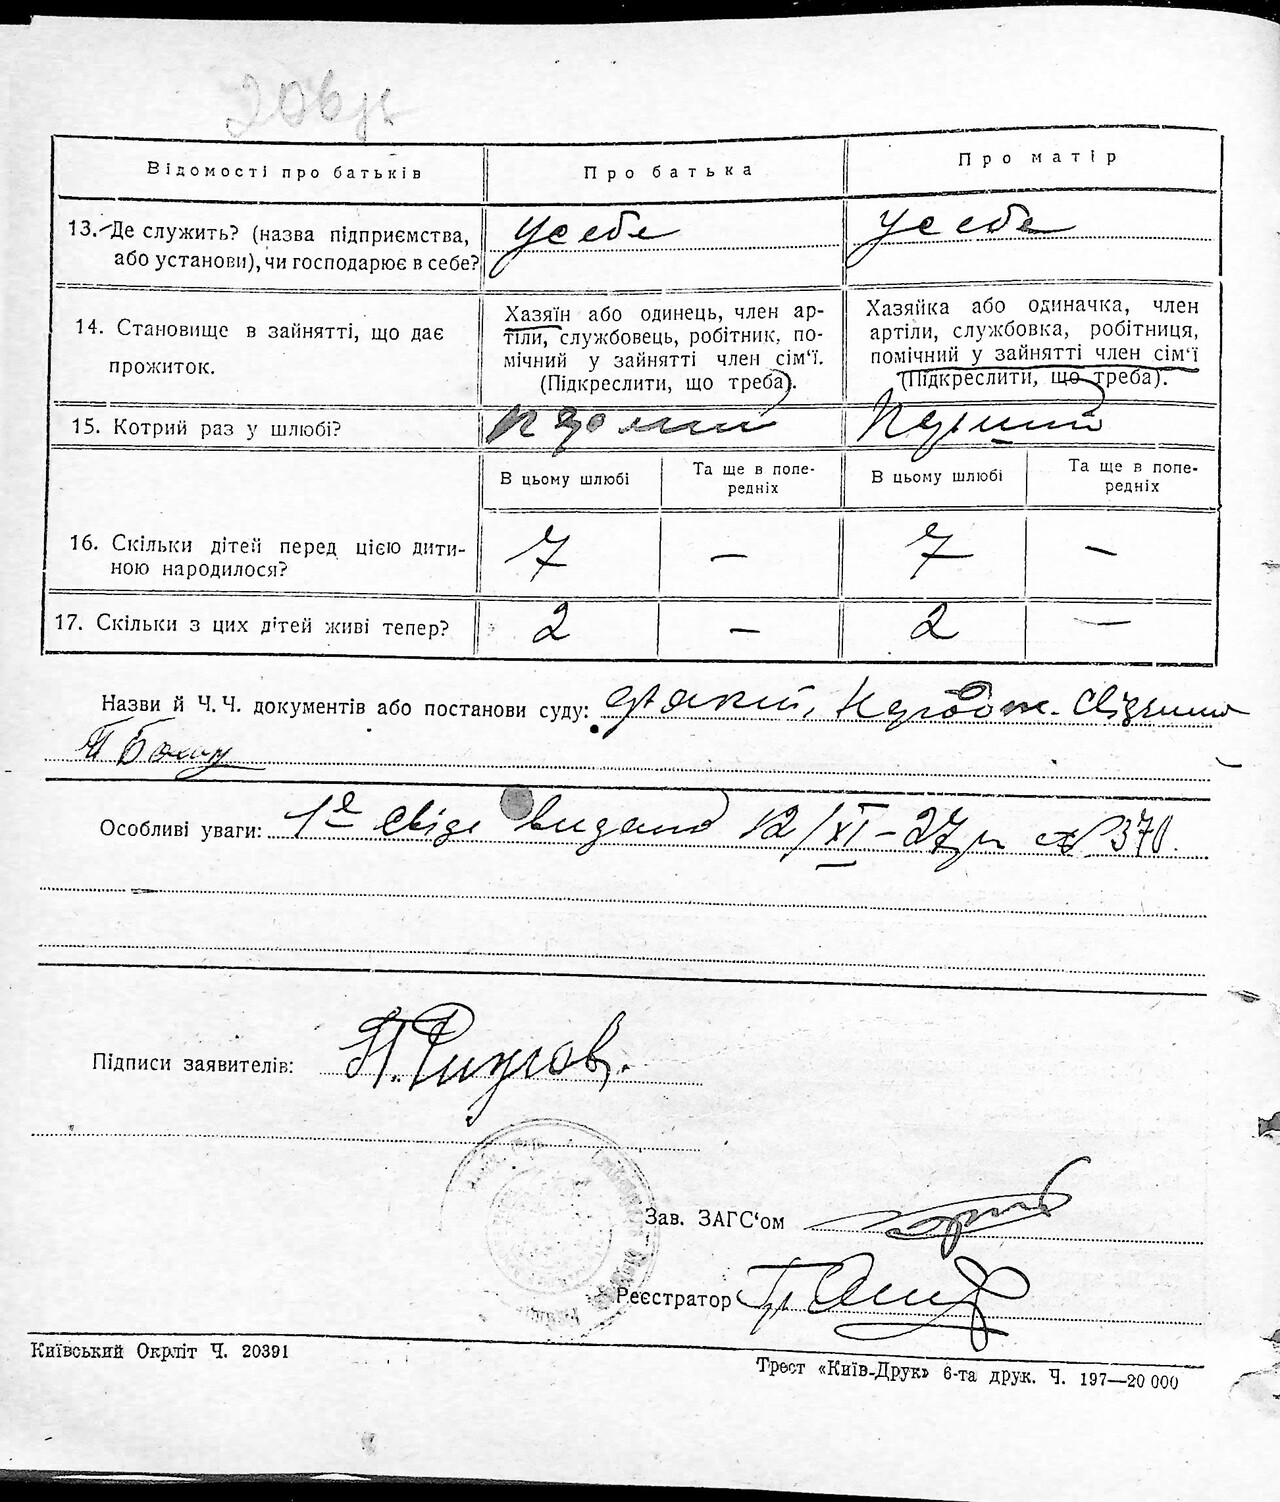 Відомості про батьків
Про батька
Про матір
13. Де служить? (назва підприємства, або установи), чи господарює в себе?
у себе
у себе
14. Становище в зайнятті, що дає прожиток.
Хазяїн або одинець, член ар-
тіли, службовець, робітник, по-
мічний у зайнятті член сім‘ї.
(Підкреслити, що треба).
Хазяйка або одиначка, член
артіли, службовка, робітниця,
помічний у зайнятті член сім‘ї
(Підкреслити, що треба).
15. Котрий раз у шлюбі?
Перший
В цьому шлюбі
Та ще в попе-
редніх
В цьому шлюбі
Та ще в попе-
редніх
16. Скільки дітей перед цією дити-
ною народилося?
7 — 7 —
17. Скільки з цих дітей живі тепер?
2 — 2 —
Назви й Ч. Ч. документів або постанови суду:
Особливі уваги: 1е свід видано 12/XI–27 р № 370.
Підписи заявителів:
Зав. ЗАГС‘ом
Реєстратор
Київський Окрліт Ч. 20391
Трест «Київ-Друк» 6-та друк. Ч. 197—20 000